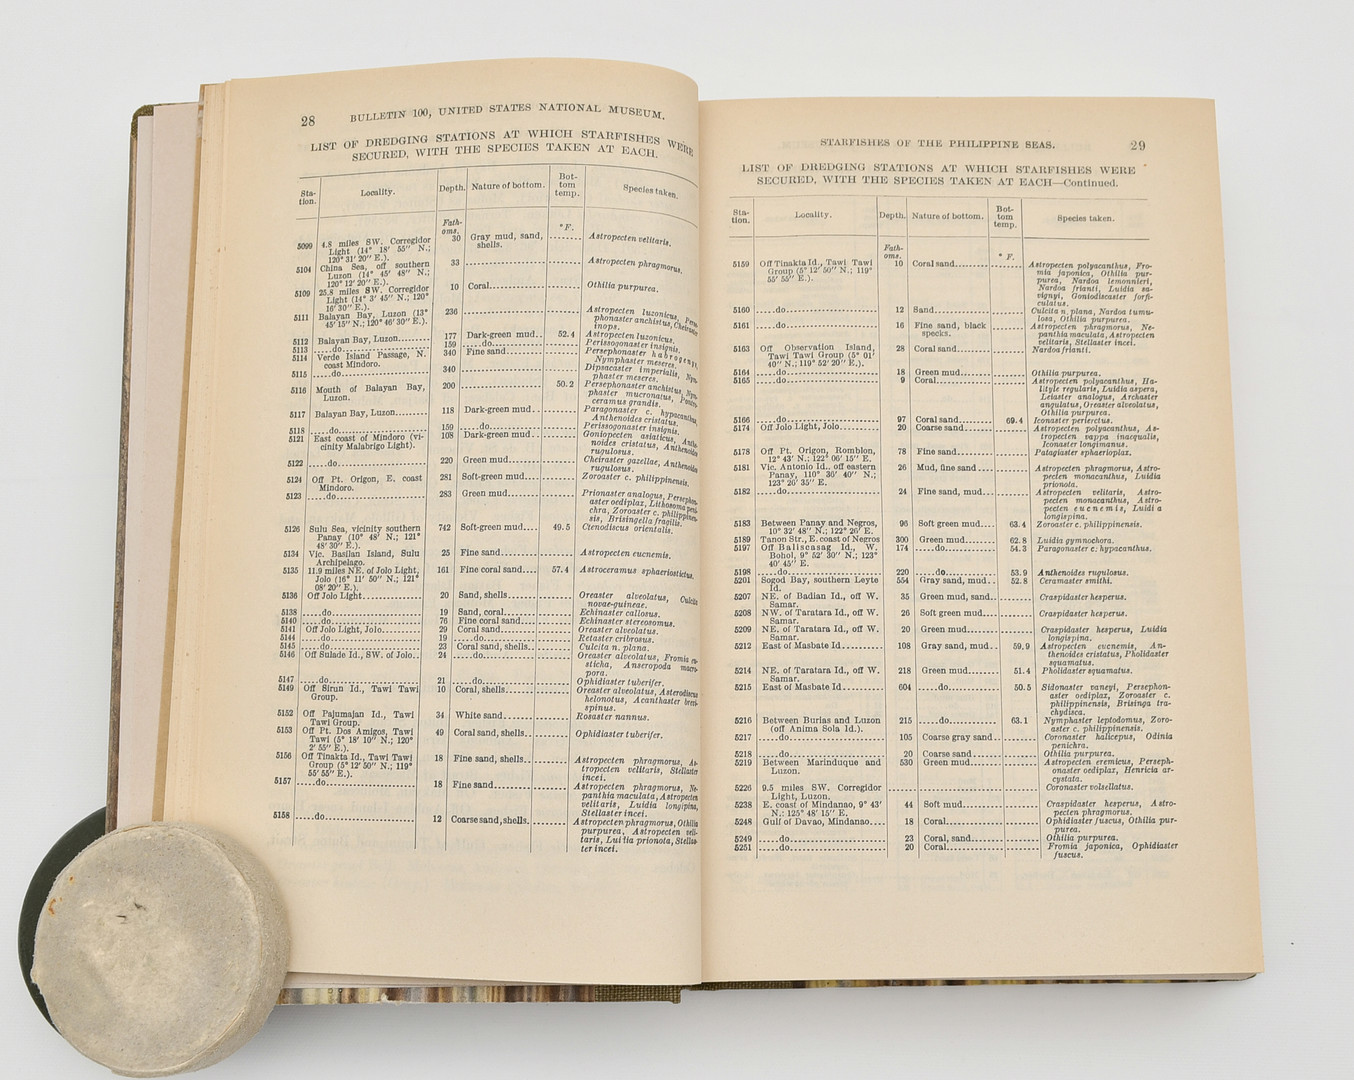 28 BULLETIN 100, UNITED STATES NATIONAL MUSEUM.
LIST OF DREDGING STATIONS AT WHICH STARFISHES WERE
SECURED, WITH THE SPECIES TAKEN AT EACH.
Sta-
tion. Locality. Depth. Nature of bottom. Bot-
tom
temp. Species taken.
Fath-
oms. °F.
5099 4.8 miles SW. Corregidor 30 Gray mud, sand, ........ Astropecten velitaris.
Light (14° 18′ 55″ N.; shells.
120° 31′ 20″ E.).
5104 China Sea, off southern 33 ........ Astropecten phragmorus.
Luzon (14° 45′ 48″ N.;
120° 12′ 20″ E.).
5109 25.8 miles SW. Corregidor 10 Coral........ Othilia purpurea.
Light (14° 3′ 45″ N.; 120°
16′ 30″ E.).
5111 Balayan Bay, Luzon (13° 236 ........ Astropecten luzonicus, Perse-
45′ 15″ N.; 120° 46′ 30″ E.). phonaster anchistus, Cheiraster
inops.
5112 Balayan Bay, Luzon........ 177 Dark-green mud.. 52.4 Astropecten luzonicus.
5113 .....do........ 159 .....do........ Perissogonaster insignis.
5114 Verde Island Passage, N. 340 Fine sand........ Persephonaster habrogenys,
coast Mindoro. Nymphaster meseres.
5115 .....do........ 340 ........ Dipsacaster imperialis, Nym-
phaster meseres.
5116 Mouth of Balayan Bay, 200 ........ 50.2 Persephonaster anchistus, Nym-
Luzon. phaster mucronatus,
ceramus grandis.
5117 Balayan Bay, Luzon........ 118 Dark-green mud.. Paragonaster c. hypacanthus,
Anthenoides cristatus.
5118 .....do........ 159 .....do........ Perissogonaster insignis.
5121 East coast of Mindoro (vi- 108 Dark-green mud.. Goniopecten asiaticus, Anthe-
cinity Malabrigo Light). noides cristatus, Anthenoides
rugulosus.
5122 .....do........ 220 Green mud........ Cheiraster gazellae, Anthenoides
rugulosus.
5124 Off Pt. Origon, E. coast 281 Soft-green mud.... Zoroaster c. philippinensis.
Mindoro.
5123 .....do........ 283 Green mud........ Prionaster analogus, Persephon-
aster oediplax, Lithosoma peni-
chra, Zoroaster c. philippinen-
sis, Brisingella fragilis.
5126 Sulu Sea, vicinity southern 742 Soft-green mud.... 49.5 Ctenodiscus orientalis.
Panay (10° 48′ N.; 121°
48′ 30″ E.).
5134 Vic. Basilan Island, Sulu 25 Fine sand........ Astropecten eucnemis.
Archipelago.
5135 11.9 miles NE. of Jolo Light, 161 Fine coral sand.... 57.4 Astroceramus sphaeriostictus.
Jolo (16° 11′ 50″ N.; 121°
08′ 20″ E.).
5136 Off Jolo Light........ 20 Sand, shells........ Oreaster alveolatus, Culcita
novae-guineae.
5138 .....do........ 19 Sand, coral........ Echinaster callosus.
5140 .....do........ 76 Fine coral sand.... Echinaster stereosomus.
5141 Off Jolo Light, Jolo........ 29 Coral sand........ Oreaster alveolatus.
5144 .....do........ 19 .....do........ Retaster cribrosus.
5145 .....do........ 23 Coral sand, shells.. Culcita n. plana.
5146 Off Sulade Id., SW. of Jolo.. 24 .....do........ Oreaster alveolatus, Fromia eu-
sticha, Anseropoda macro-
pora.
5147 .....do........ 21 .....do........ Ophidiaster tuberifer.
5149 Off Sirun Id., Tawi Tawi 10 Coral, shells........ Oreaster alveolatus, Asterodiscus
Group. helonotus, Acanthaster brevi-
spinus.
5152 Off Pajumajan Id., Tawi 34 White sand........ Rosaster nannus.
Tawi Group.
5153 Off Pt. Dos Amigos, Tawi 49 Coral sand, shells.. Ophidiaster tuberifer.
Tawi (5° 18′ 10″ N.; 120°
2′ 55″ E.).
5156 Off Tinakta Id., Tawi Tawi 18 Fine sand, shells.... Astropecten phragmorus, As-
Group (5° 12′ 50″ N.; 119° tropecten velitaris, Stellaster
55′ 55″ E.). incei.
5157 .....do........ 18 Fine sand........ Astropecten phragmorus, Ne-
panthia maculata, Astropecten
velitaris, Luidia longipina,
Stellaster incei.
5158 .....do........ 12 Coarse sand, shells. Astropecten phragmorus, Othilia
purpurea, Astropecten veli-
taris, Luitia prionota, Stellas-
ter incei.
STARFISHES OF THE PHILIPPINE SEAS. 29
LIST OF DREDGING STATIONS AT WHICH STARFISHES WERE
SECURED, WITH THE SPECIES TAKEN AT EACH—Continued.
Sta-
tion. Locality. Depth. Nature of bottom. Bot-
tom
temp. Species taken.
Fath-
oms. °F.
5159 Off Tinakta Id., Tawi Tawi 10 Coral sand........ Astropecten polyacanthus, Fro-
Group (5° 12′ 50″ N.; 119° mia japonica, Othilia pur-
55′ 55″ E.). purea, Nardoa lemonnieri,
Nardoa frianti, Luidia sa-
vignyi, Goniodiscaster forfi-
culatus.
5160 .....do........ 12 Sand........ Culcita n. plana, Nardoa tumu-
losa, Othilia purpurea.
5161 .....do........ 16 Fine sand, black Astropecten phragmorus, Ne-
specks. panthia maculata, Astropecten
velitaris, Stellaster incei.
5163 Off Observation Island, 28 Coral sand........ Nardoa frianti.
Tawi Tawi Group (5° 01′
40″ N.; 119° 52′ 20″ E.).
5164 .....do........ 18 Green mud........ Othilia purpurea.
5165 .....do........ 9 Coral........ Astropecten polyacanthus, Ha-
lityle regularis, Luidia aspera,
Leiaster analogus, Archaster
angulatus, Oreaster alveolatus,
Othilia purpurea.
5166 .....do........ 97 Coral sand........ 69.4 Iconaster perierctus.
5174 Off Jolo Light, Jolo........ 20 Coarse sand........ Astropecten polyacanthus, As-
tropecten vappa inaequalis,
Iconaster longimanus.
5178 Off Pt. Origon, Romblon, 78 Fine sand........ Patagiaster sphaerioplax.
12° 43′ N.; 122° 06′ 15″ E.
5181 Vic. Antonio Id., off eastern 26 Mud, fine sand.... Astropecten phragmorus, Astro-
Panay, 110° 36′ 40″ N.; pecten monacanthus, Luidia
123° 26′ 35″ E. prionota.
5182 .....do........ 24 Fine sand, mud... Astropecten velitaris, Astro-
pecten monacanthus, Astro-
pecten eucnemis, Luidia
longispina.
5183 Between Panay and Negros, 96 Soft green mud.... 63.4 Zoroaster c. philippinensis.
10° 32′ 48″ N.; 122° 26′ E.
5189 Tanon Str., E. coast of Negros 300 Green mud........ 62.8 Luidia gymnochora.
5197 Off Baliscasag Id., W. 174 .....do........ 54.3 Paragonaster c. hypacanthus.
Bohol, 9° 52′ 30″ N.; 123°
40′ 45″ E.
5198 .....do........ 220 .....do........ 53.9 Anthenoides rugulosus.
5201 Sogod Bay, southern Leyte 554 Gray sand, mud... 52.8 Ceramaster smithi.
Id.
5207 NE. of Badian Id., off W. 35 Green mud, sand... Craspidaster hesperus.
Samar.
5208 NW. of Taratara Id., off W. 26 Soft green mud.... Craspidaster hesperus.
Samar.
5209 NE. of Taratara Id., off W. 20 Green mud........ Craspidaster hesperus, Luidia
Samar. longispina.
5212 East of Masbate Id........ 108 Gray sand, mud... 59.9 Astropecten eucnemis, An-
thenoides cristatus, Pholidaster
squamatus.
5214 NE. of Taratara Id., off W. 218 Green mud........ 51.4 Pholidaster squamatus.
Samar.
5215 East of Masbate Id........ 604 .....do........ 50.5 Sidonaster vaneyi, Persephon-
aster oediplax, Zoroaster c.
philippinensis, Brisinga tra-
chydisca.
5216 Between Burias and Luzon 215 .....do........ 63.1 Nymphaster leptodomus, Zoro-
(off Anima Sola Id.). aster c. philippinensis.
5217 .....do........ 105 Coarse gray sand... Coronaster halicepus, Odinia
penichra.
5218 .....do........ 20 Coarse sand........ Othilia purpurea.
5219 Between Marinduque and 530 Green mud........ Astropecten eremicus, Perseph-
Luzon. onaster oediplax, Henricia ar-
cystata.
5226 9.5 miles SW. Corregidor ........ Coronaster volsellatus.
Light, Luzon.
5238 E. coast of Mindanao, 9° 43′ 44 Soft mud........ Craspidaster hesperus, Astro-
N.; 125° 48′ 15″ E. pecten phragmorus.
5248 Gulf of Davao, Mindanao.... 18 Coral........ Ophidiaster fuscus, Othilia pur-
purea.
5249 .....do........ 23 Coral, sand........ Othilia purpurea.
5251 .....do........ 20 Coral........ Fromia japonica, Ophidiaster
fuscus.